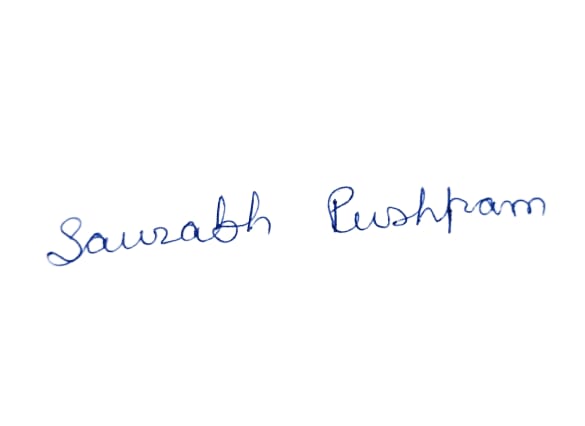 Saurabh Pushpam